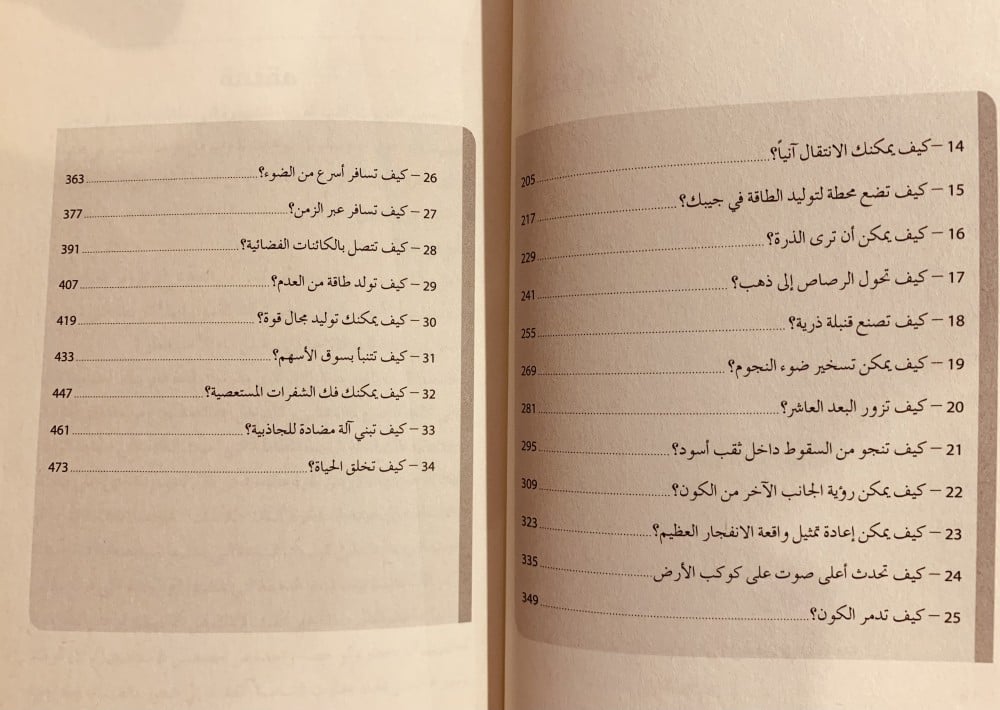 14 – كيف يمكنك الانتقال آنياً؟ 205
15 – كيف تضع محطة لتوليد الطاقة في جيبك؟ 217
16 – كيف يمكن أن ترى الذرة؟ 229
17 – كيف تحول الرصاص إلى ذهب؟ 241
18 – كيف تصنع قنبلة ذرية؟ 255
19 – كيف يمكن تسخير ضوء النجوم؟ 269
20 – كيف تزور البعد العاشر؟ 281
21 – كيف تنجو من السقوط داخل ثقب أسود؟ 295
22 – كيف يمكن ر�ية الجانب الآخر من الكون؟ 309
23 – كيف يمكن إعادة تمثيل واقعة الانفجار العظيم؟ 323
24 – كيف تحدث أعلى صوت على كوكب الأرض 335
25 – كيف تدمر الكون؟ 349
26 – كيف تسافر أسرع من الضوء؟ 363
27 – كيف تسافر عبر الزمن؟ 377
28 – كيف تتصل بالكائنات الفضائية؟ 391
29 – كيف تولد طاقة من العدم؟ 407
30 – كيف يمكنك توليد مجال قوة؟ 419
31 – كيف تتنبأ بسوق الأسهم؟ 433
32 – كيف يمكنك فك الشفرات المستعصية؟ 447
33 – كيف تبني آلة مضادة للجاذبية؟ 461
34 – كيف تخلق الحياة؟ 473